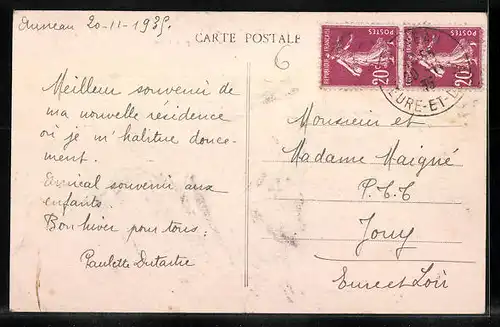 Auneau 20-11-1935.
CARTE POSTALE
6
REPUBLIQUE FRANÇAISE
POSTES
20c
REPUBLIQUE FRANÇAISE
POSTES
20c
EURE-ET-
Meilleur souvenir de
ma nouvelle résidence
où je m'habitue douce-
ment.
Amical souvenir aux
enfants.
Bon hiver pour tous.
Paulette Dutartre
Monsieur et
Madame Maigné
P.T.T
Jouy
Eure et Loir